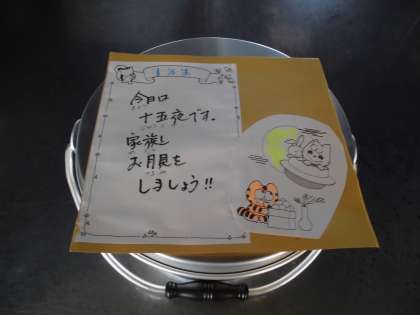 今日は
十五夜です。
家族と
お月見を
しましょう!!